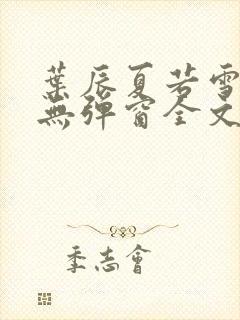 葉辰夏若雪
無彈窗全文
季志會